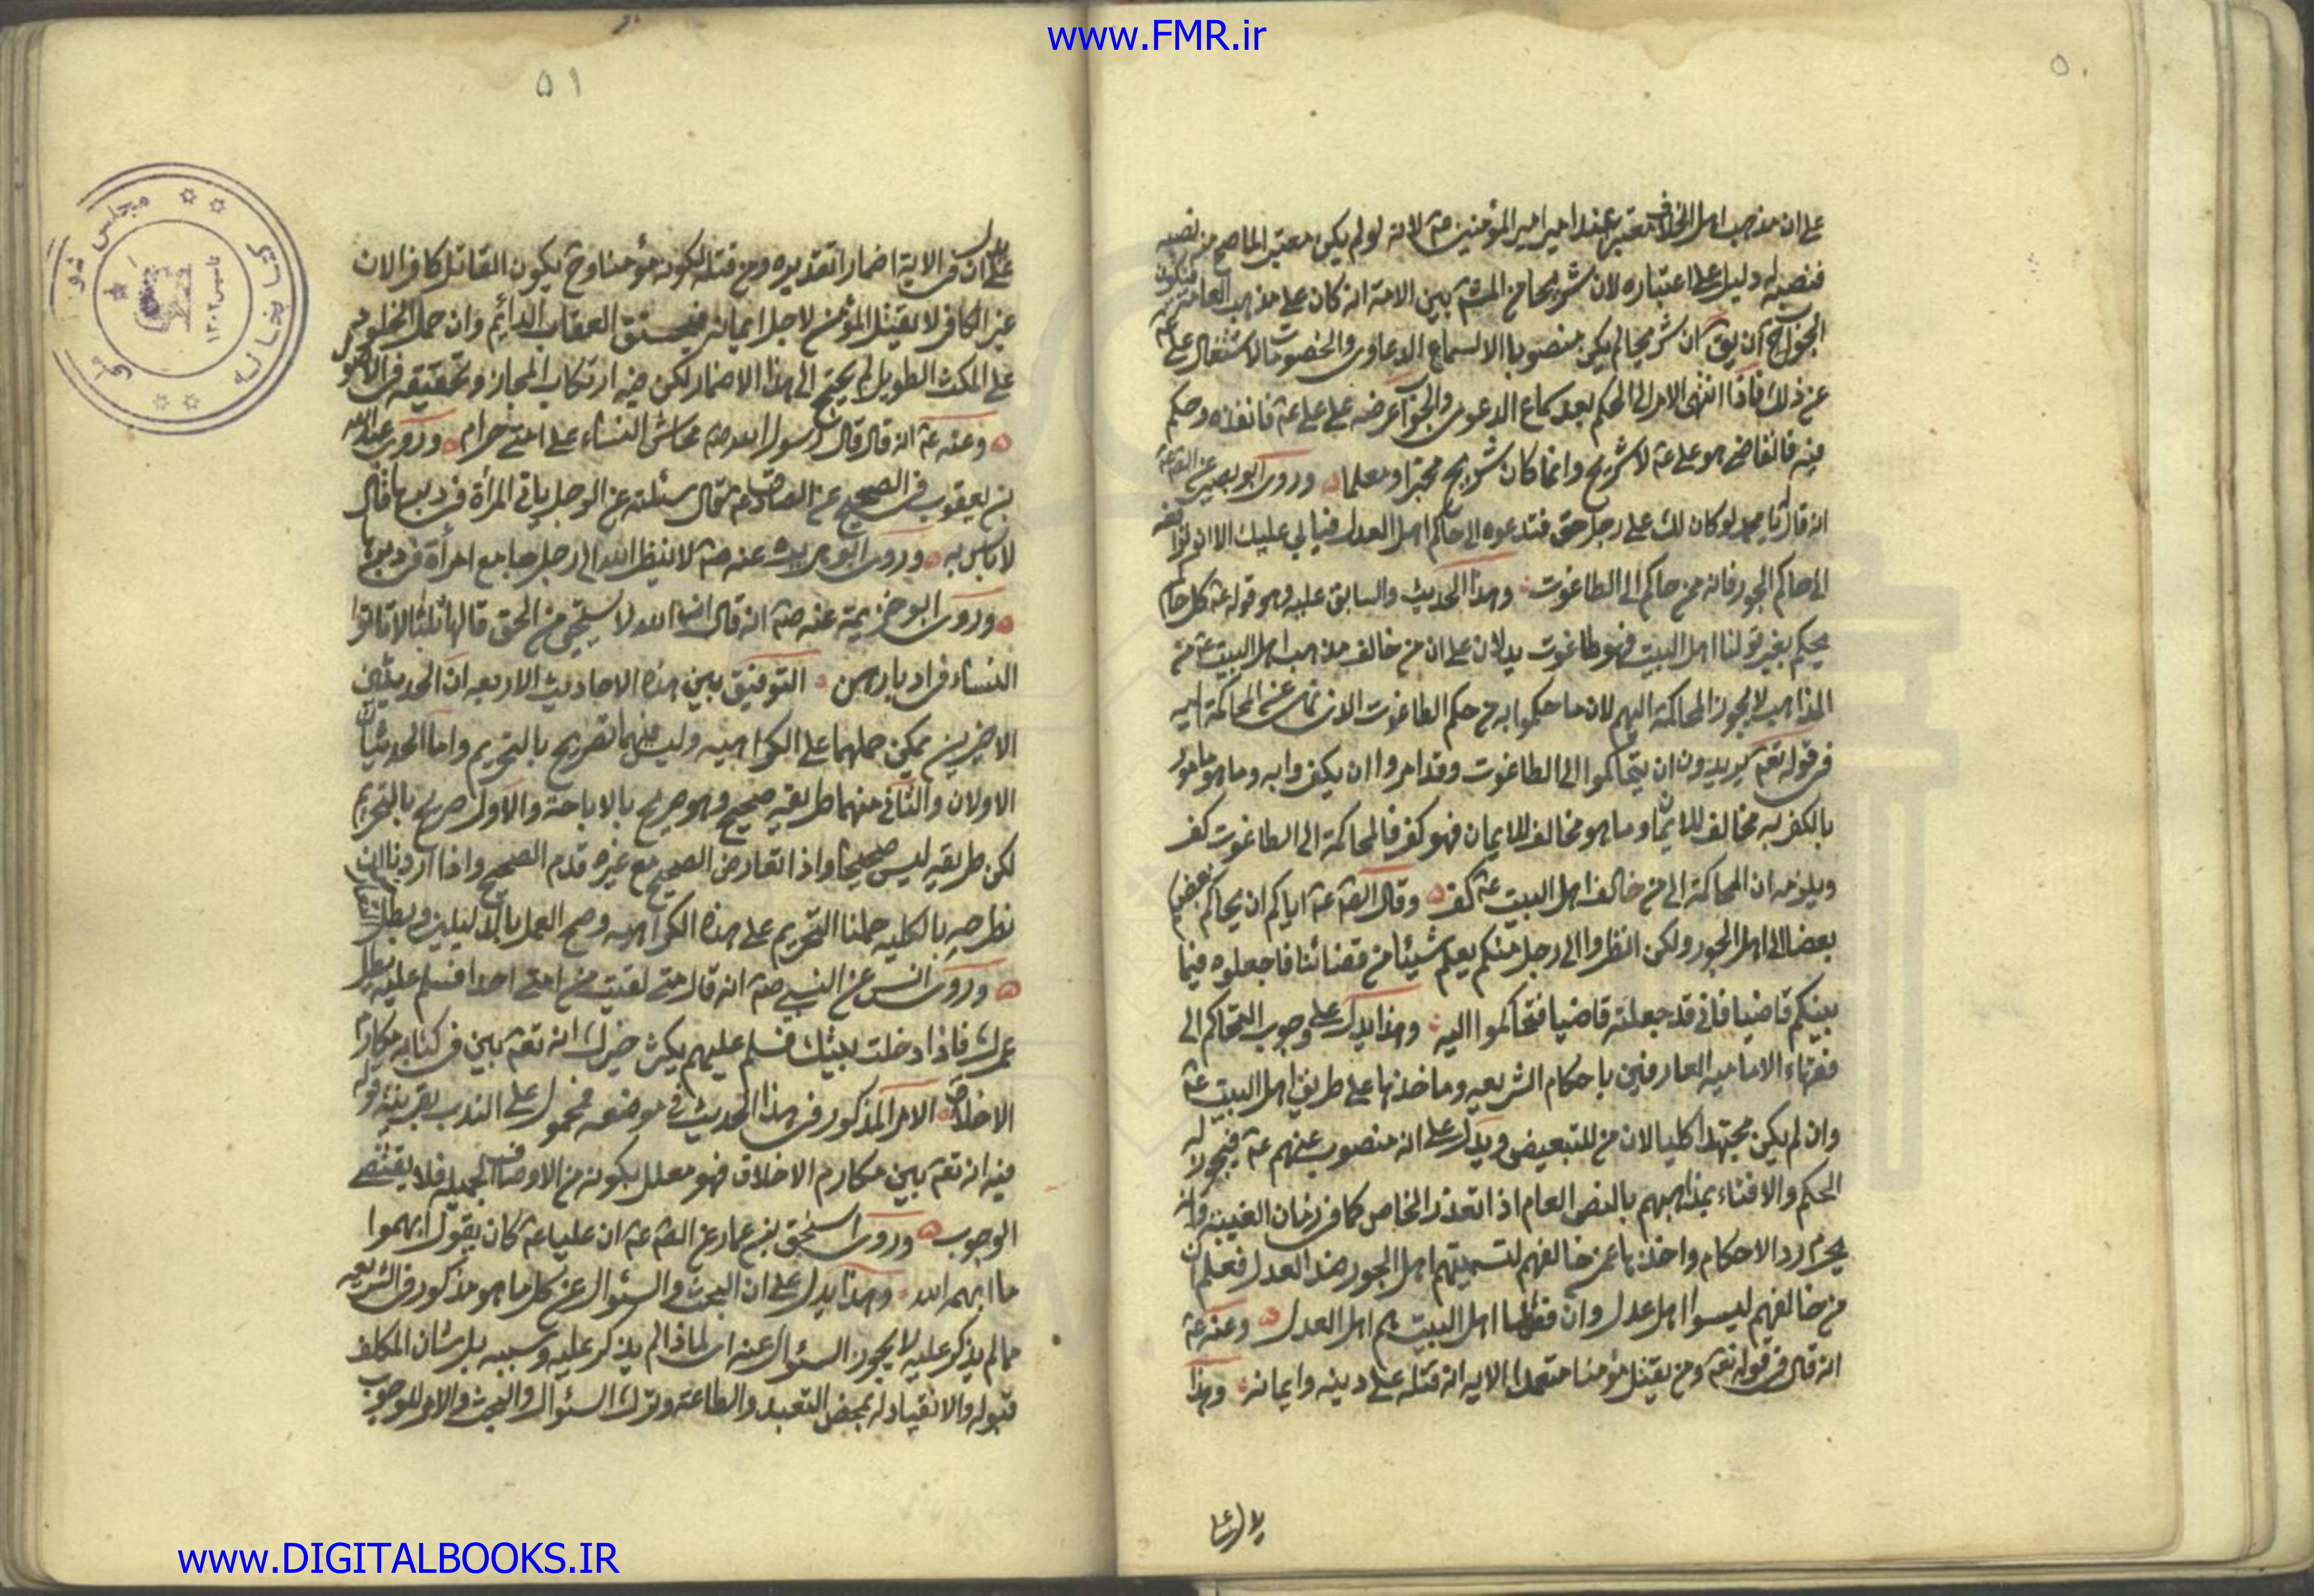 www.FMR.ir
٥٠
على ان مذهب اهل الخلاف معتبر عند امير المؤمنين عة لانه لو لم يكن معتبرا لما صح منه نصبه
فنصبه له دليل على اعتباره لان شريحا من المشة بين الامة انه كان على مذهب العامة فيكون
الجواب ان يق ان شريحا لم يكن منصوبا الا لسماع الدعاوى والخصومات لاشتغال على عة
عن ذلك فاذا انتهى الامر الى الحكم بعد سماع الدعوى والجواب عرضه على على عة فانفذه وحكم
فيه فالقاضى هو على عة لا شريح وانما كان شريح مخبرا ومعلما وروى ابو بصير عن الصة عة
انه قال يا با محمد لو كان لك على رجل حق فتدعوه الى حاكم اهل العدل فيابى عليك الا ان ترافعه
الى حاكم الجور فانه ممن حاكم الى الطاغوت وهذا الحديث والسابق عليه وهو قوله عة كل حاكم
يحكم بغير قولنا اهل البيت فهو طاغوت يدلان على ان من خالف مذهب اهل البيت عة من
المذاهب لا يجوز المحاكمة اليهم لان ما حكموا به من حكم الطاغوت الذى نهى عن المحاكمة اليه
فى قوله تعة يريدون ان يتحاكموا الى الطاغوت وقد امروا ان يكفروا به وما هو مامور
بالكفر به مخالف للايمان وما هو مخالف للايمان فهو كفر فالمحاكمة الى الطاغوت كفر
ويلزمه ان المحاكمة الى من خالف اهل البيت عة كفر وقال الصة عة اياكم ان يحاكم بعضكم
بعضا الى اهل الجور ولكن انظروا الى رجل منكم يعلم شيئا من قضائنا فاجعلوه فيما
بينكم قاضيا فانى قد جعلته قاضيا فتحاكموا اليه وهذا يدل على وجوب التحاكم الى
فقهاء الامامية العارفين باحكام الشريعه وماخذها على طريق اهل البيت عة
وان لم يكن مجتهدا كليا لان من للتبعيض ويدل على انه منصوب عنهم عة فيجوز له
الحكم والافتاء بمذاهبهم بالنص العام اذا تعذر الخاص كما فى زمان الغيبة وانه
يحرم رد الاحكام واخذها عمن خالفهم لتسميتهم اهل الجور ضد العدل فعلم ان
من خالفهم ليسوا اهل عدل وان فقهاء اهل البيت هم اهل العدل وعنه عة
انه قال فى قوله تعة ومن يقتل مؤمنا متعمدا الايه انه قتله على دينه وايمانه وهذا
يدل على
٥١
يدل
على ان فى الاية اضمارا تقديره ومن قتله لكونه مؤمنا وح يكون القاتل كافرا لان
غير الكافر لا يقتل المؤمن لاجل ايمانه فيستحق العقاب الدائم وان حمل الخلود
على المكث الطويل لم يحتج الى هذا الاضمار لكن فيه ارتكاب المجاز وتحقيقه فى الاصول
وعنه عة انه قال قال رسول الله صة محاش النساء على امتى حرام وروى عبد الله
بن يعقوب فى الصحيح عن الصادق عة قال سئلته عن الرجل ياتى المرأة فى دبرها قال
لا باس به وروى ابو هريرة عنه صة لا ينظر الله الى رجل جامع امرأة فى دبرها
وروى ابو خزيمة عنه صة انه قال ان الله لا يستحيى من الحق قالها ثلثا لا تاتوا
النساء فى ادبارهن التوفيق بين هذه الاحاديث الاربعه ان الحديثين
الاخيرين يمكن حملهما على الكراهيه وليس فيهما تصريح بالتحريم واما الحديثان
الاولان والثانى منهما طريقه صحيح وهو صريح بالاباحة والاول صريح بالتحريم
لكن طريقه ليس صحيحا واذا تعارض الصحيح مع غيره قدم الصحيح واذا اردنا ان
نطرحه بالكليه حملنا التحريم على هذه الكراهيه وصح العمل بالدليلين
وروى انس عن النبى صة انه قال متى لقيت من امتى احدا فسلم عليه يطل
عمرك فاذا دخلت بيتك فسلم عليهم يكثر خيرك انه تعة بين فى كتابه مكارم
الاخلاق الامر المذكور فى هذا الحديث فى موضعه محمول على الندب بقرينة قوله
فيه انه تعة بين مكارم الاخلاق فهو معلل بكونه من الاوصاف الجميله فلا يقتضى
الوجوب وروى اسحق بن عمار عن الصة عة ان عليا عة كان يقول ابهموا
ما ابهمه الله وهذا يدل على ان البحث والسئوال عن كل ما هو مذكور فى الشريعه
مما لم يذكر عليه لا يجوز السئوال عنه اى لماذا لم يذكر عليه وسببه بل شان المكلف
قبوله والانقياد له بمحض التعبد والطاعة وترك السئوال والبحث والامر للوجوب
كتابخانه مجلس شورای ملی
تاسیس ۱۳۰۲
www.DIGITALBOOKS.IR